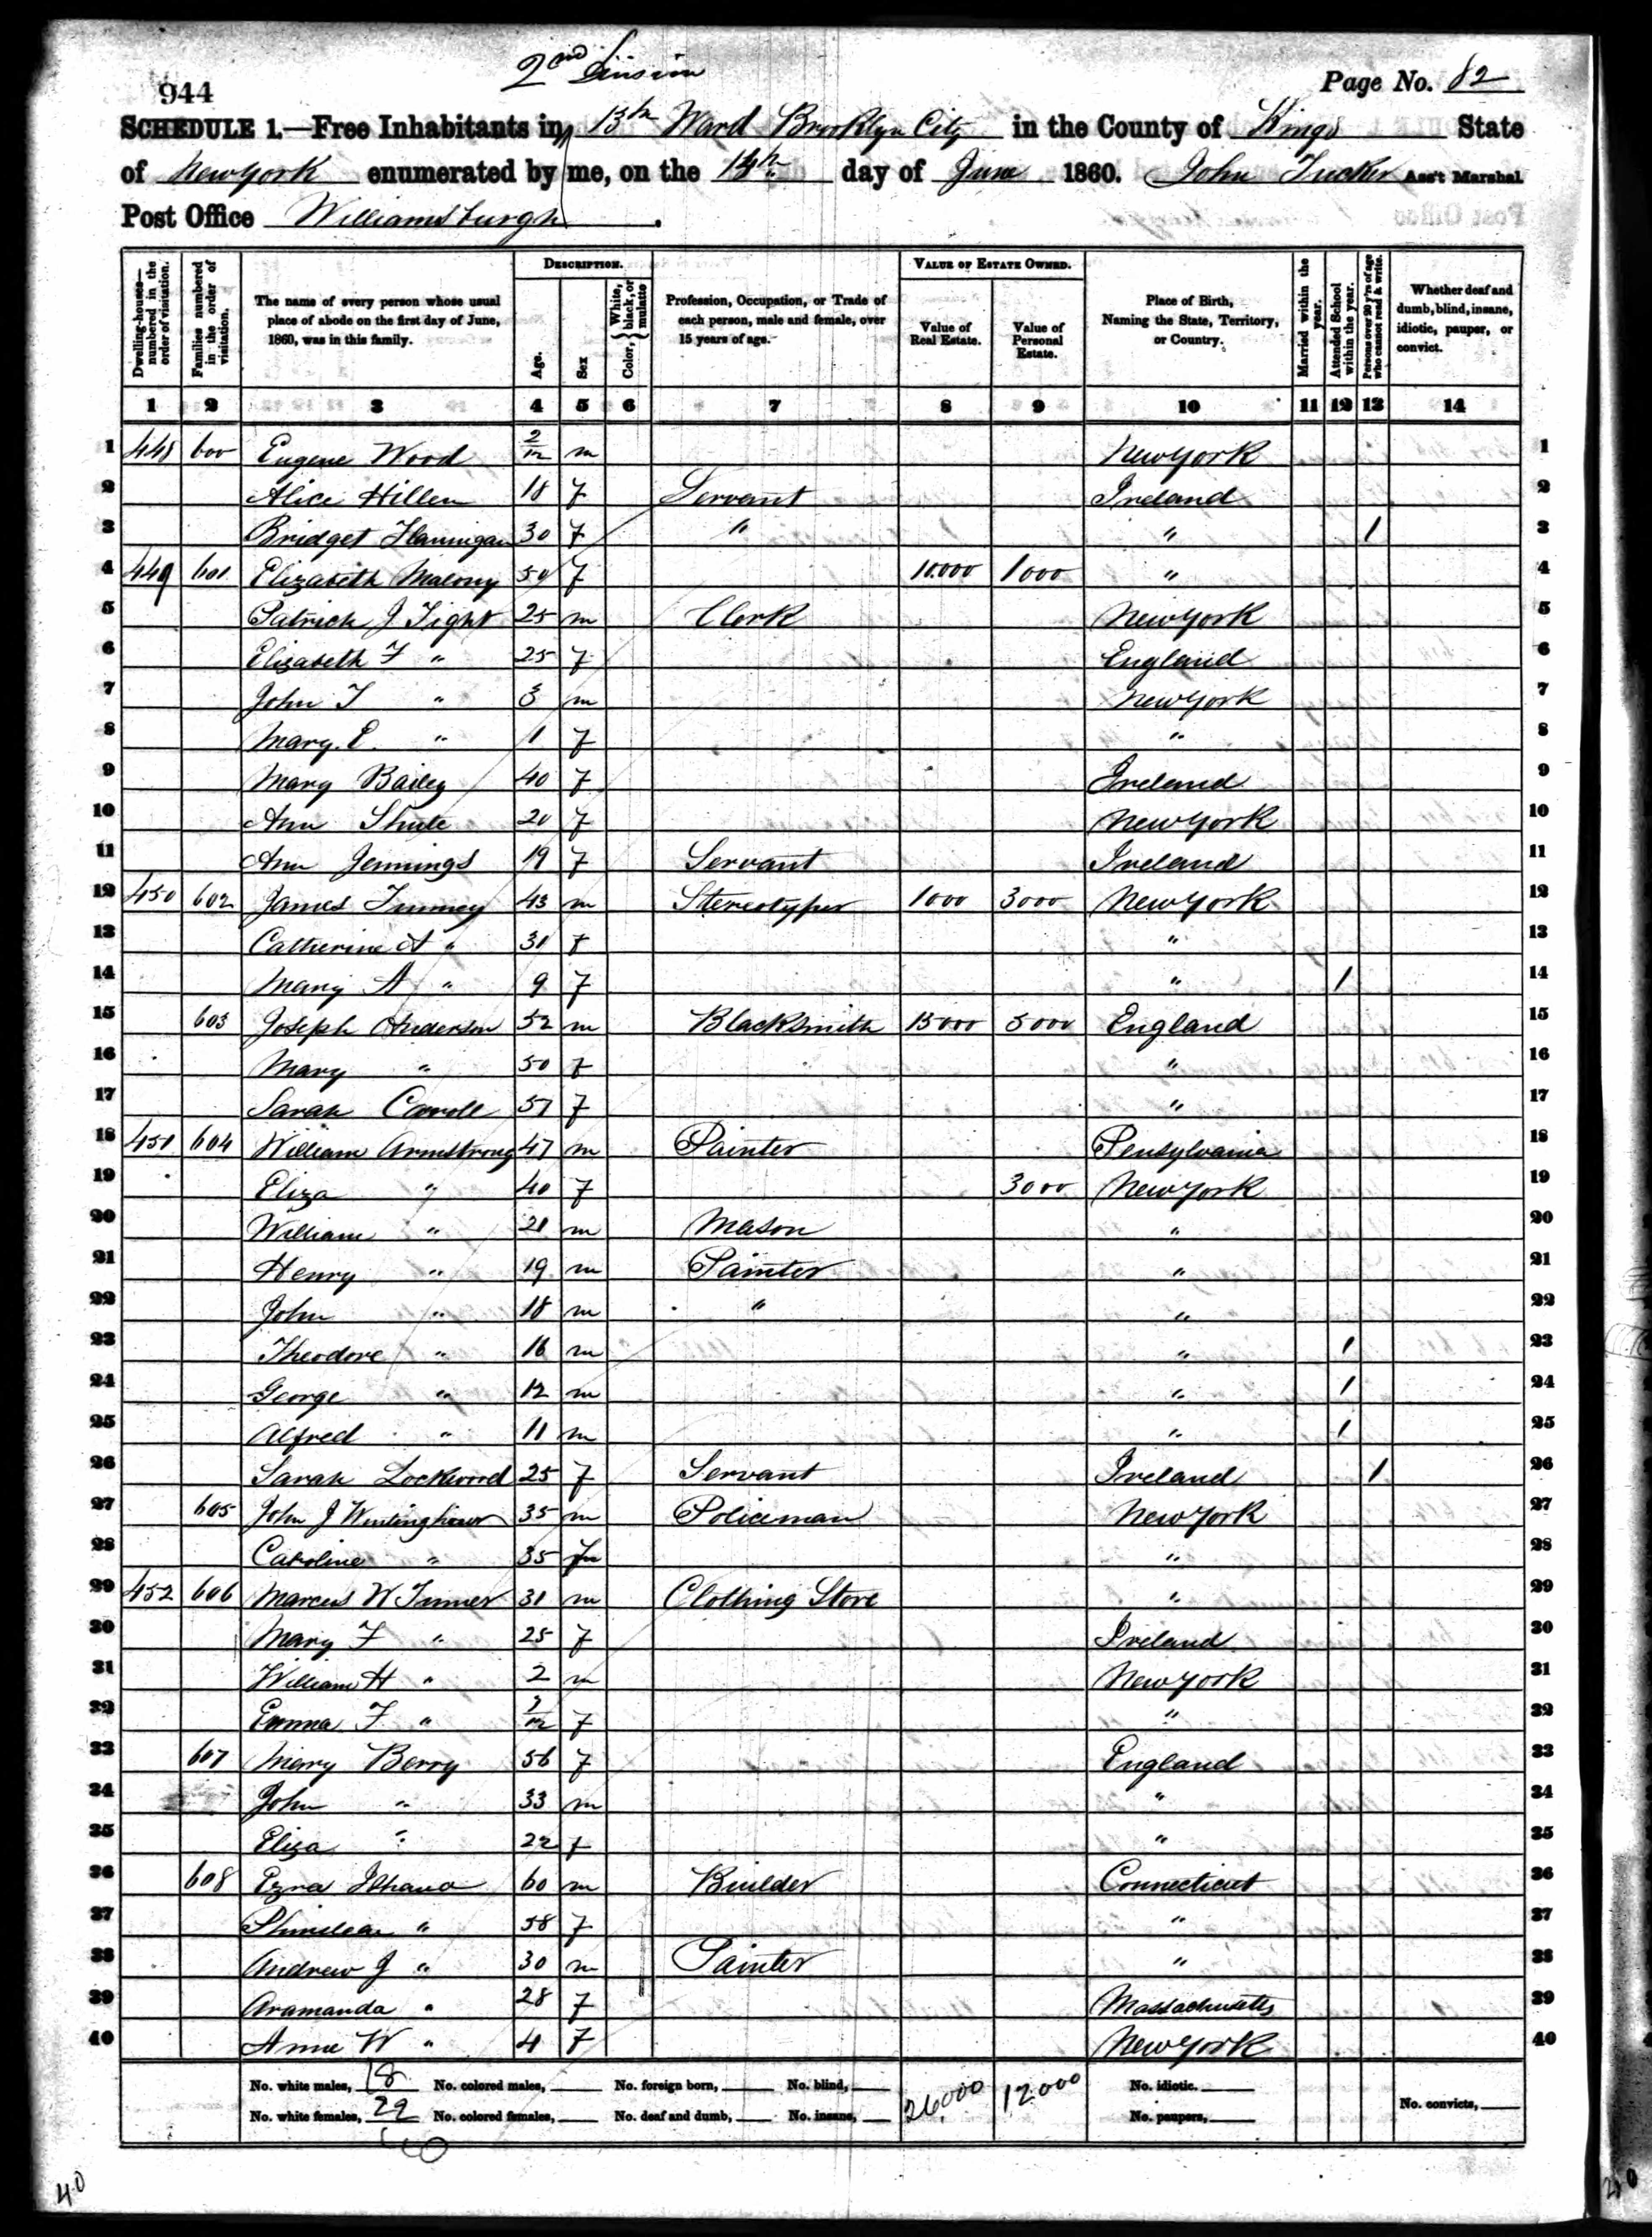 2nd Division
944
Page No. 82
SCHEDULE 1.—Free Inhabitants in 13th Ward Brooklyn City in the County of Kings State
of New York enumerated by me, on the 14th day of June 1860. John Tucker Ass't Marshal
Post Office Williamsburgh.
Dwelling-houses—numbered in the order of visitation.
Families numbered in the order of visitation.
The name of every person whose usual place of abode on the first day of June, 1860, was in this family.
DESCRIPTION.
Age.
Sex
Color, { White, black, or mulatto
Profession, Occupation, or Trade of each person, male and female, over 15 years of age.
VALUE OF ESTATE OWNED.
Value of Real Estate.
Value of Personal Estate.
Place of Birth, Naming the State, Territory, or Country.
Married within the year.
Attended School within the year.
Persons over 20 y'rs of age who cannot read & write.
Whether deaf and dumb, blind, insane, idiotic, pauper, or convict.
1 2 3 4 5 6 7 8 9 10 11 12 13 14
1 448 600 Eugene Wood 2/12 m New York 1
2 Alice Hillen 18 f Servant Ireland 2
3 Bridget Flannigan 30 f " " 1 3
4 449 601 Elizabeth Malony 50 f 10.000 1000 " 4
5 Patrick J Tight 25 m Clerk New York 5
6 Elizabeth F " 25 f England 6
7 John T " 3 m New York 7
8 Mary. E. " 1 f " 8
9 Mary Bailey 40 f Ireland 9
10 Ann Shute 20 f New York 10
11 Ann Jennings 19 f Servant Ireland 11
12 450 602 James 43 m Stereotyper 1000 3000 New York 12
13 Catherine A " 31 f " 13
14 Mary A " 9 f " 1 14
15 603 Joseph Anderson 52 m Blacksmith 15000 5000 England 15
16 Mary " 50 f " 16
17 Sarah 57 f " 17
18 451 604 William Armstrong 47 m Painter Pensylvania 18
19 Eliza " 40 f 3000 New York 19
20 William " 21 m Mason " 20
21 Henry " 19 m Painter " 21
22 John " 18 m " " 22
23 Theodore " 16 m " 1 23
24 George " 12 m " 1 24
25 Alfred " 11 m " 1 25
26 Sarah Lockwood 25 f Servant Ireland 1 26
27 605 John J 35 m Policeman New York 27
28 Caroline " 35 f " 28
29 452 606 Marcus W 31 m Clothing Store " 29
30 Mary F " 25 f Ireland 30
31 William H " 2 m New York 31
32 Emma F " f " 32
33 607 Mary Berry 56 f England 33
34 John " 33 m " 34
35 Eliza " 22 f " 35
36 608 Ezra 60 m Builder Connecticut 36
37 " 58 f " 37
38 Andrew J " 30 m Painter " 38
39 Aramanda " 28 f Massachusetts 39
40 Anne W " 4 f New York 40
No. white males, 18 No. colored males, No. foreign born, No. blind, 26,000 12.000 No. idiotic.
No. white females, 22 No. colored females, No. deaf and dumb, No. insane, No. paupers, No. convicts,
40
40